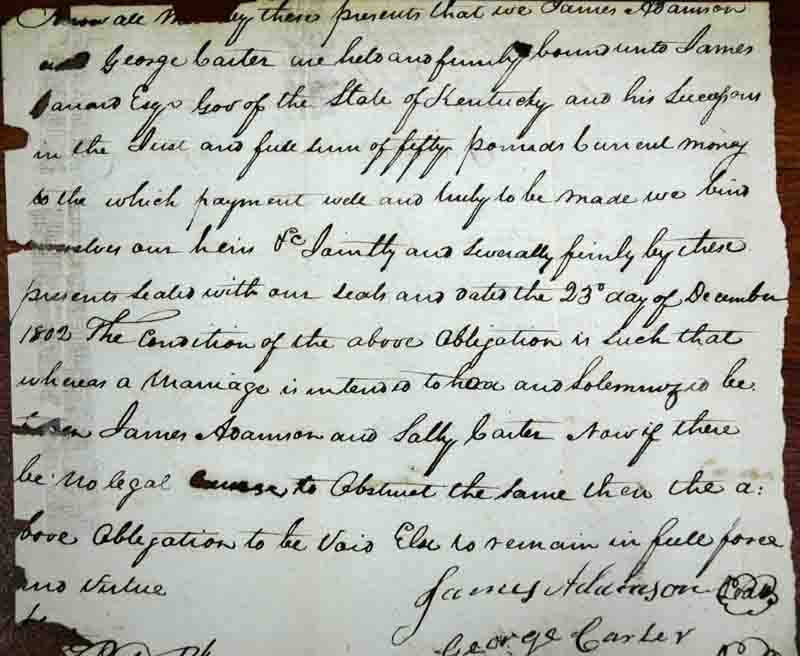 Know all Men by these presents that we James Adamson
and George Carter are held and firmly bound unto James
Garrard Esqr Gov of the State of Kentucky and his Successors
in the Just and full sum of fifty pounds Current money
to the which payment well and truly to be made we bind
ourselves our heirs &c Jointly and Severally firmly by these
presents sealed with our seals and dated the 23d day of December
1802 The Condition of the above Obligation is such that
whereas a Marriage is intended to be had and Solemnized be:
tween James Adamson and Sally Carter Now if there
be no legal Cause to Obstruct the same then the a:
bove Obligation to be Void Else to remain in full force
and Virtue
James Adamson Seal
George Carter